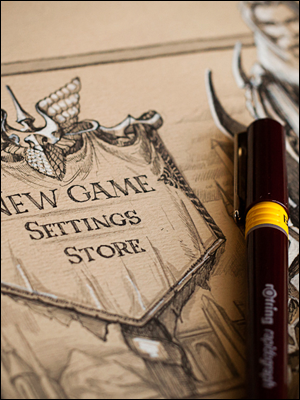 NEW GAME
SETTINGS
STORE
rOtring rapidograph